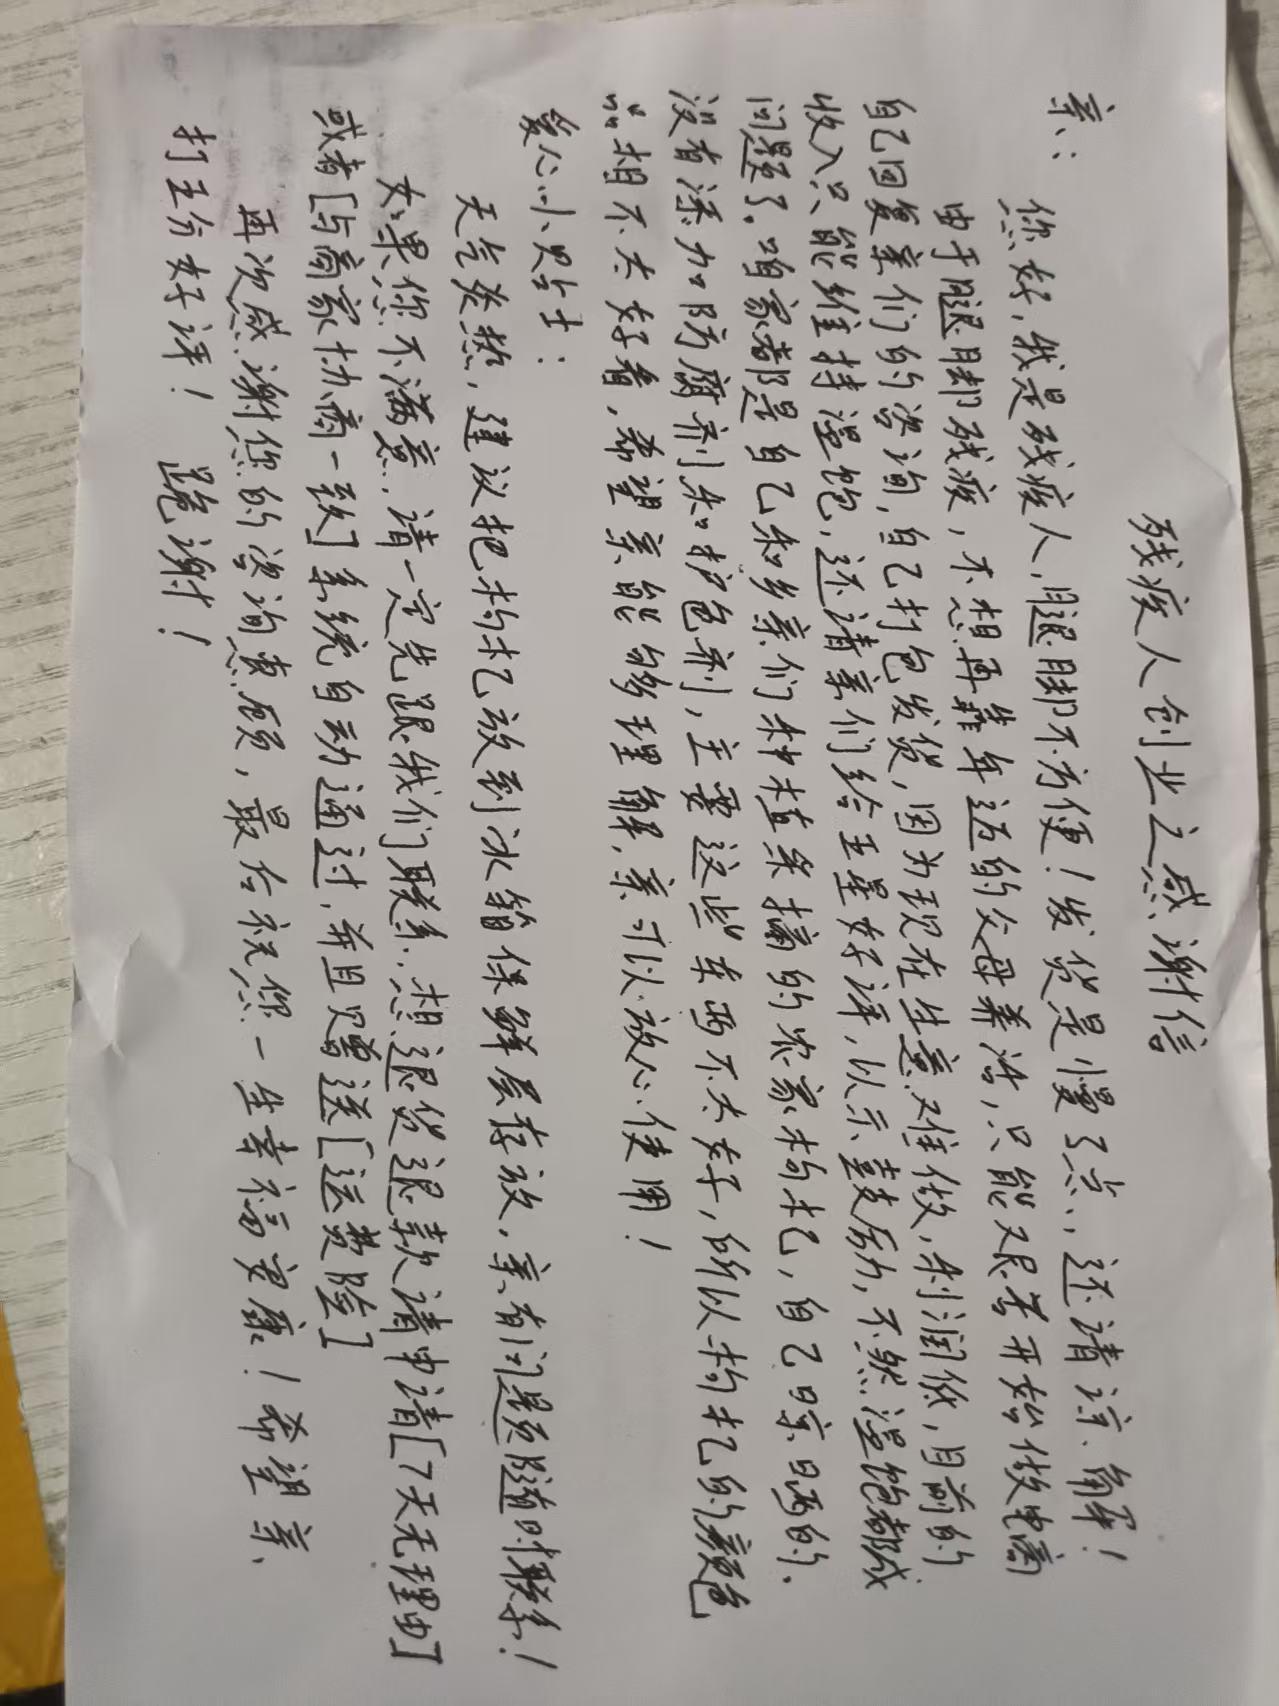 残疾人创业之感谢信
亲:
您好,我是残疾人,腿脚不方便!发货是慢了点,还请谅解!
由于腿脚残疾,不想再靠年迈的父母养活,只能艰苦开始做电商
自己回复亲们的咨询,自己打包发货,因为现在生意难做,利润低,目前的
收入只能维持温饱,还请亲们给五星好评,以示鼓励,不然温饱都成
问题了。咱家都是自己和乡亲们种植采摘的农家枸杞,自己晾晒的.
没有添加防腐剂和护色剂,主要这些东西不太好,所以枸杞的颜色
品相不太好看,希望亲能够理解,亲可以放心使用!
爱心小贴士:
天气炎热,建议把枸杞放到冰箱保鲜层存放,亲有问题随时联系!
如果您不满意,请一定先跟我们联系,想退货退款请申请[7天无理由]
或者[与商家协商一致]系统自动通过,并且赠送[运费险]
再次感谢您的咨询惠顾,最后祝您一生幸福安康!希望亲、
打五分好评! 跪谢!